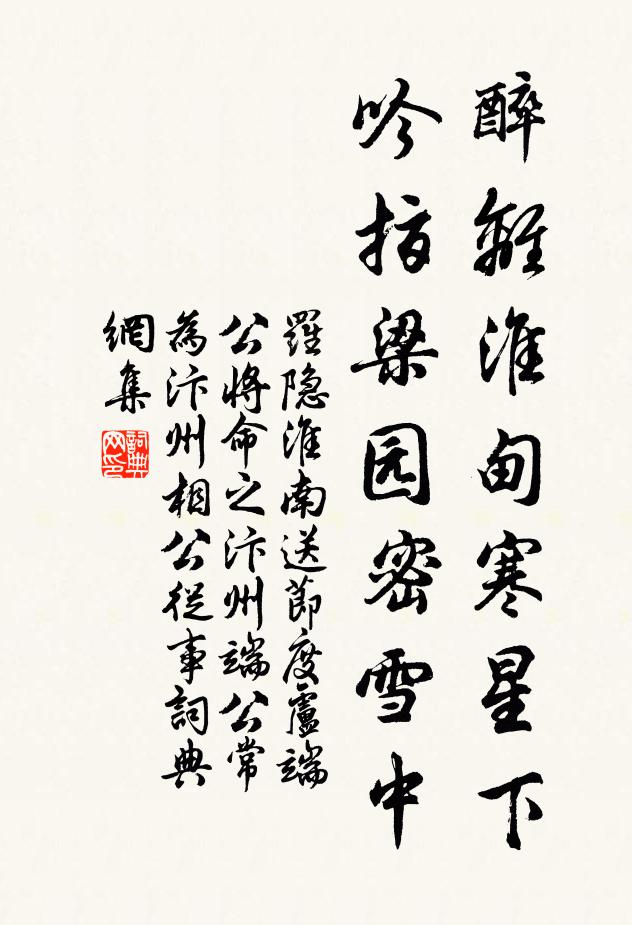 醉離淮甸寒星下
吟指梁园密雪中
羅隐淮南送節度盧端
公將命之汴州端公常
為汴州相公從事詞典
網集
詞典
网印